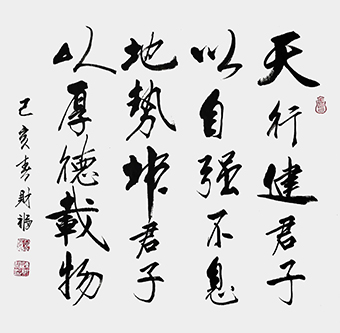 天行健君子
以自强不息
地勢坤君子
以厚德載物
己亥春財福